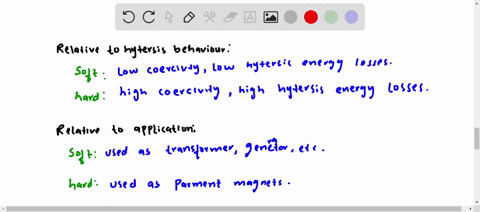 Relative to hytersis behaviour:
Soft: low coercivity, low hyteresic energy losses.
hard: high coercivity, high hytersis energy losses.
Relative to application:
Soft: used as transformer, genetor, etc.
hard: used as parment magnets.